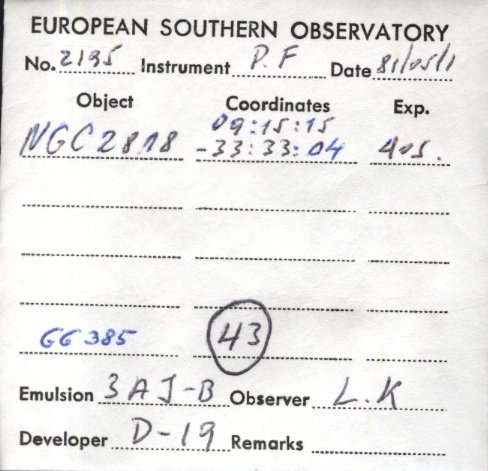 EUROPEAN SOUTHERN OBSERVATORY
No. 2195 Instrument P.F Date 81/05/1
Object Coordinates Exp.
09:15:15
NGC2818 -33:33:04 40s.
GG 385 43
Emulsion 3AJ-B Observer L.K
Developer D-19 Remarks